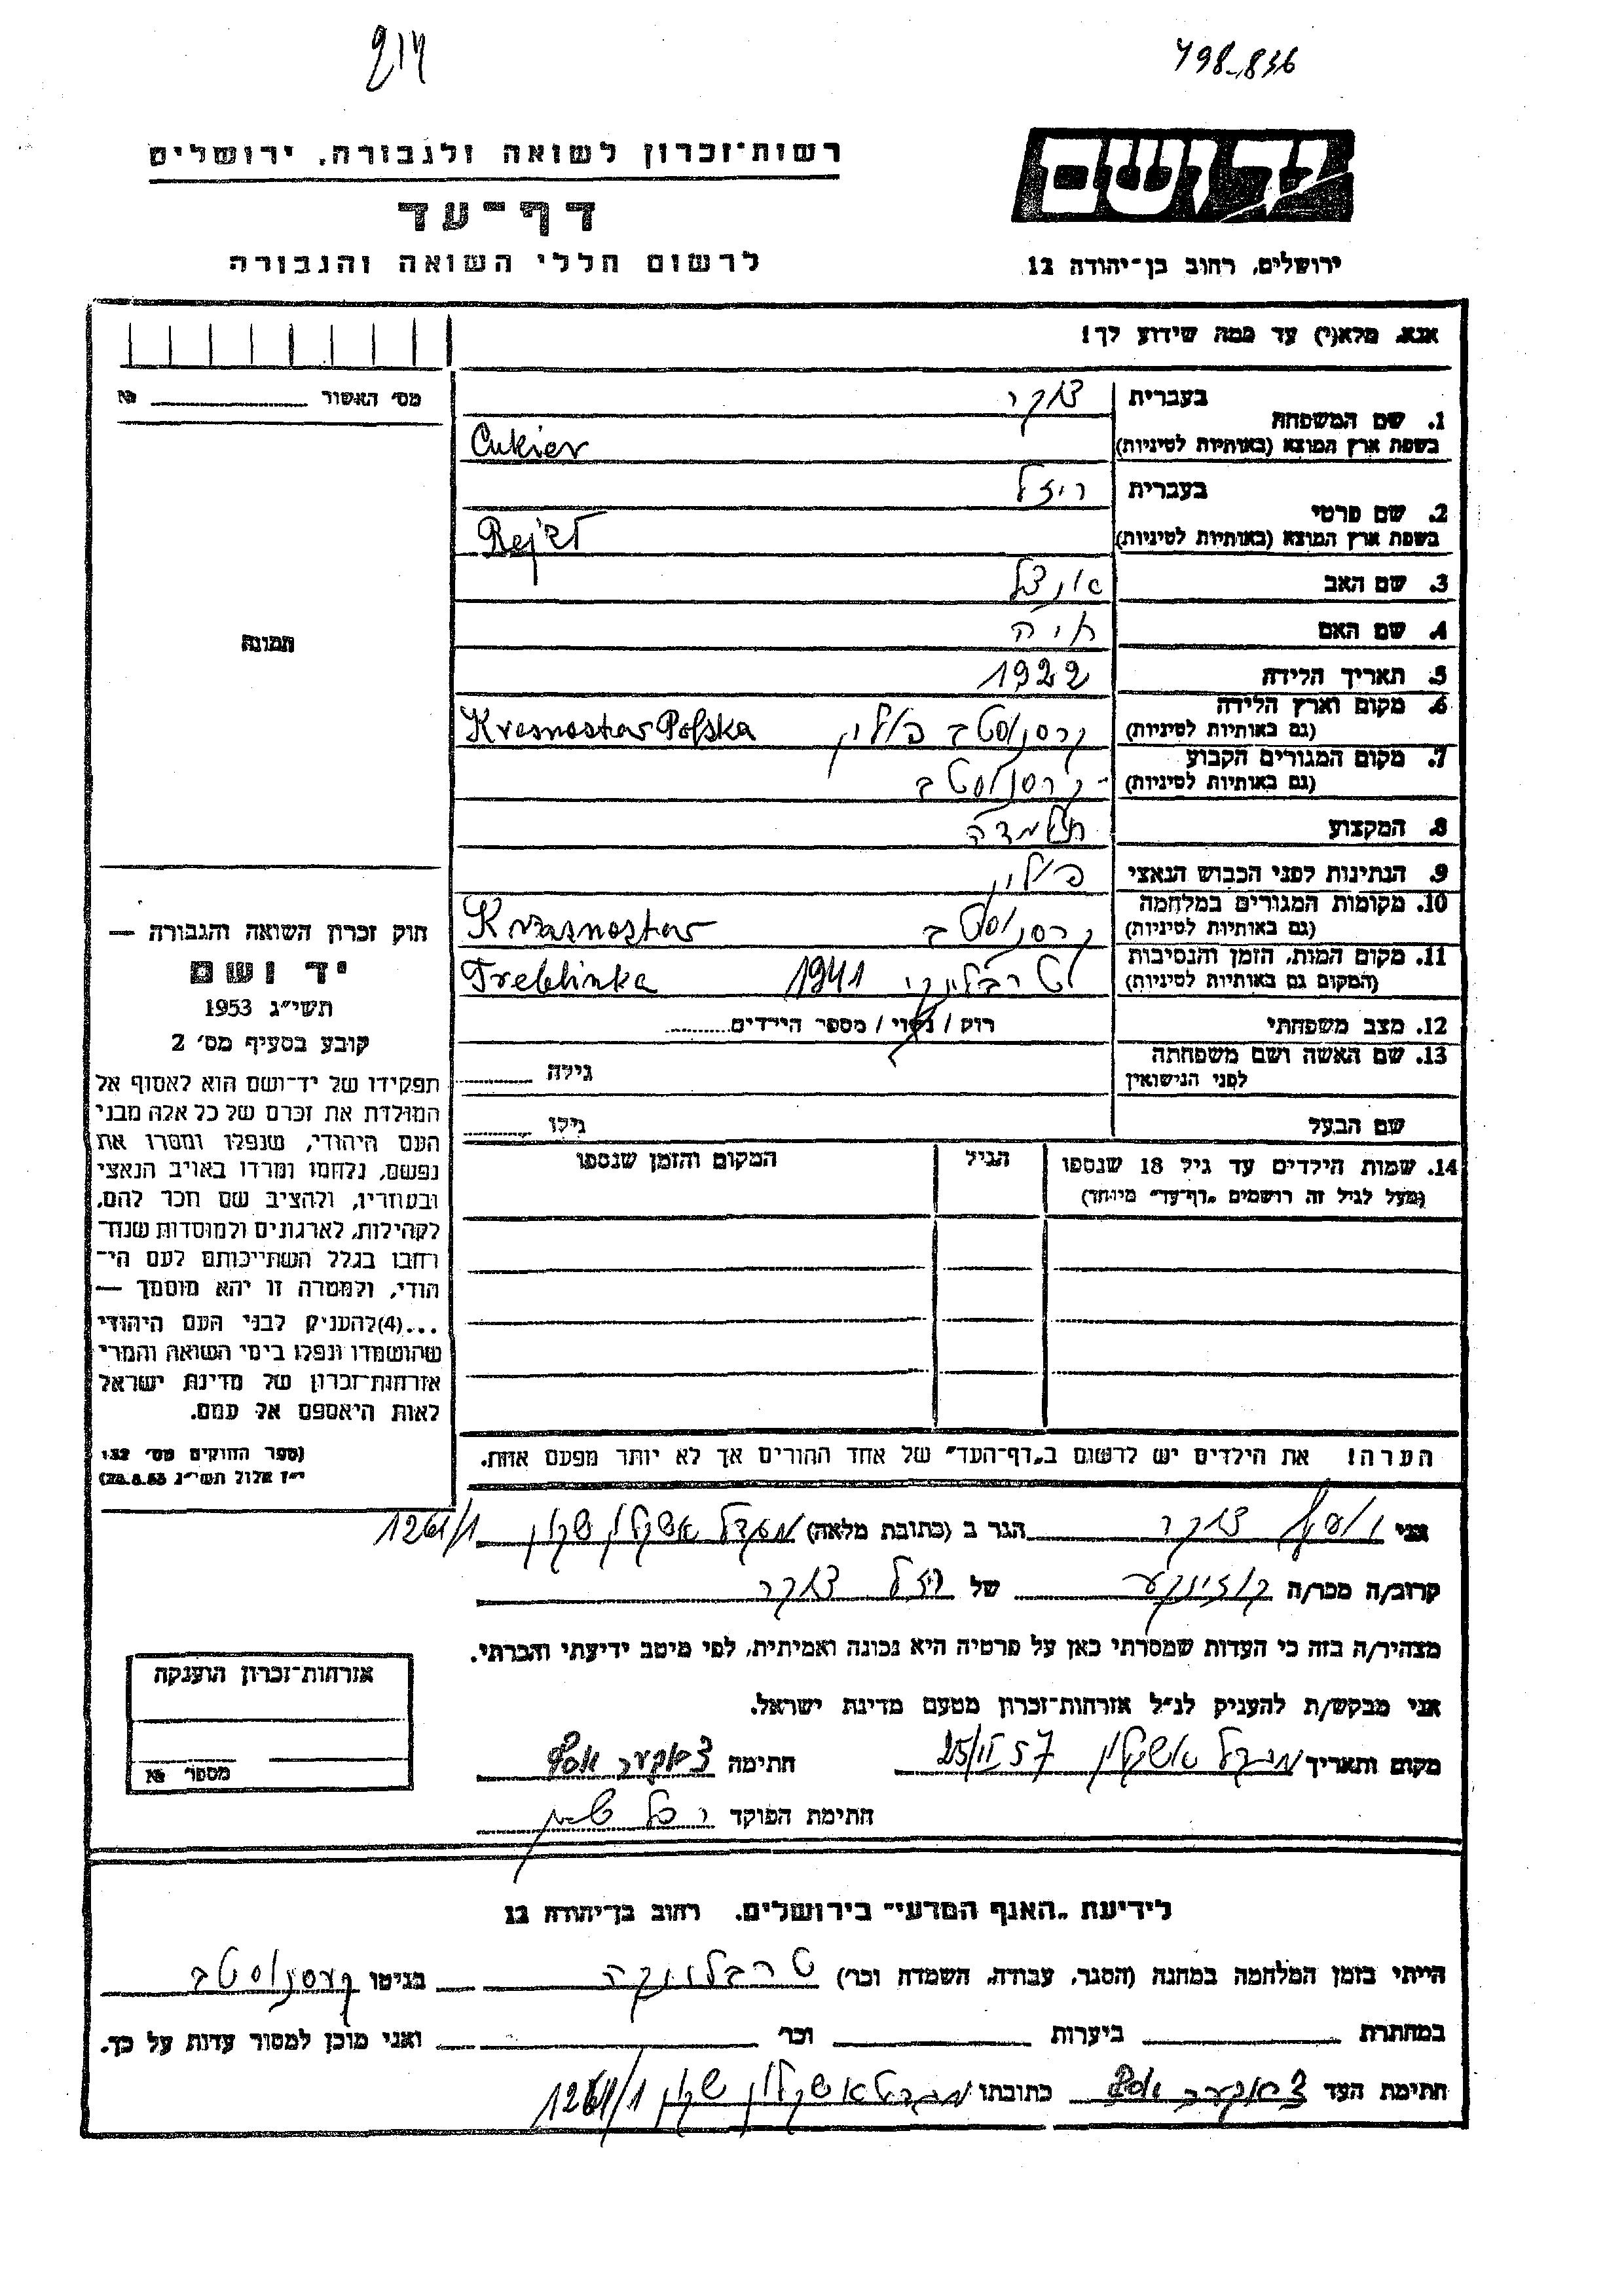 214
498-836
יד ושם
ירושלים, רחוב בן-יהודה 12
רשות-זכרון לשואה ולגבורה, ירושלים
דף-עד
לרשום חללי השואה והגבורה
אנא, מלא(י) עד כמה שידוע לך!
מס' האשור № 
1. שם המשפחה
בעברית צוקר
בשפת ארץ המוצא (באותיות לטיניות) Cukier
2. שם פרטי
בעברית ריזל
בשפת ארץ המוצא (באותיות לטיניות)
3. שם האב
4. שם האם חיה
5. תאריך הלידה 1922
6. מקום וארץ הלידה
(גם באותיות לטיניות) קרסנוסטב פולין Kresnostav Polska
7. מקום המגורים הקבוע
(גם באותיות לטיניות) קרסנוסטב
8. המקצוע תלמידה
9. הנתינות לפני הכבוש הנאצי פולין
10. מקומות המגורים במלחמה
(גם באותיות לטיניות) קרסנוסטב Krasnostav
11. מקום המות, הזמן והנסיבות
(המקום גם באותיות לטיניות) 1941 Treblinka
12. מצב משפחתי רווק / נשוי / מספר הילדים
13. שם האשה ושם משפחתה
לפני הנישואין גילה
שם הבעל גילו
14. שמות הילדים עד גיל 18 שנספו הגיל המקום והזמן שנספו
(מעל לגיל זה רושמים "דף-עד" מיוחד)
הערה! את הילדים יש לרשום ב"דף-העד" של אחד ההורים אך לא יותר מפעם אחת.
תמונה
חוק זכרון השואה והגבורה —
יד ושם
תשי"ג 1953
קובע בסעיף מס' 2
תפקידו של יד-ושם הוא לאסוף אל
המולדת את זכרם של כל אלה מבני
העם היהודי, שנפלו ומסרו את
נפשם, נלחמו ומרדו באויב הנאצי
ובעוזריו, ולהציב שם וזכר להם,
לקהילות, לארגונים ולמוסדות שנח-
רבו בגלל השתייכותם לעם הי-
הודי, ולמטרה זו יהא מוסמך —
...(4)להעניק לבני העם היהודי
שהושמדו ונפלו בימי השואה והמרי
אזרחות-זכרון של מדינת ישראל
לאות היאספם אל עמם.
(ספר החוקים מס' 132
י"ז אלול תשי"ג 28.8.53)
אני צוקר הגר ב (כתובת מלאה) מגדל אשקלון שכון 1261/1
קרוב/ה מכר/ה של ריזל צוקר
מצהיר/ה בזה כי העדות שמסרתי כאן על פרטיה היא נכונה ואמיתית, לפי מיטב ידיעתי והכרתי.
אני מבקש/ת להעניק לנ"ל אזרחות-זכרון מטעם מדינת ישראל.
מקום ותאריך מגדל אשקלון 25/II 57 חתימה
חתימת הפוקד
אזרחות-זכרון הוענקה
מספר №
לידיעת "האגף המדעי" בירושלים, רחוב בן-יהודה 12
הייתי בזמן המלחמה במחנה (הסגר, עבודה, השמדה וכו') טרבלינקה בגיטו קרסנוסטב
במחתרת ביערות וכו' ואני מוכן למסור עדות על כך.
חתימת העד כתובתו מגדל אשקלון שכון 1261/1